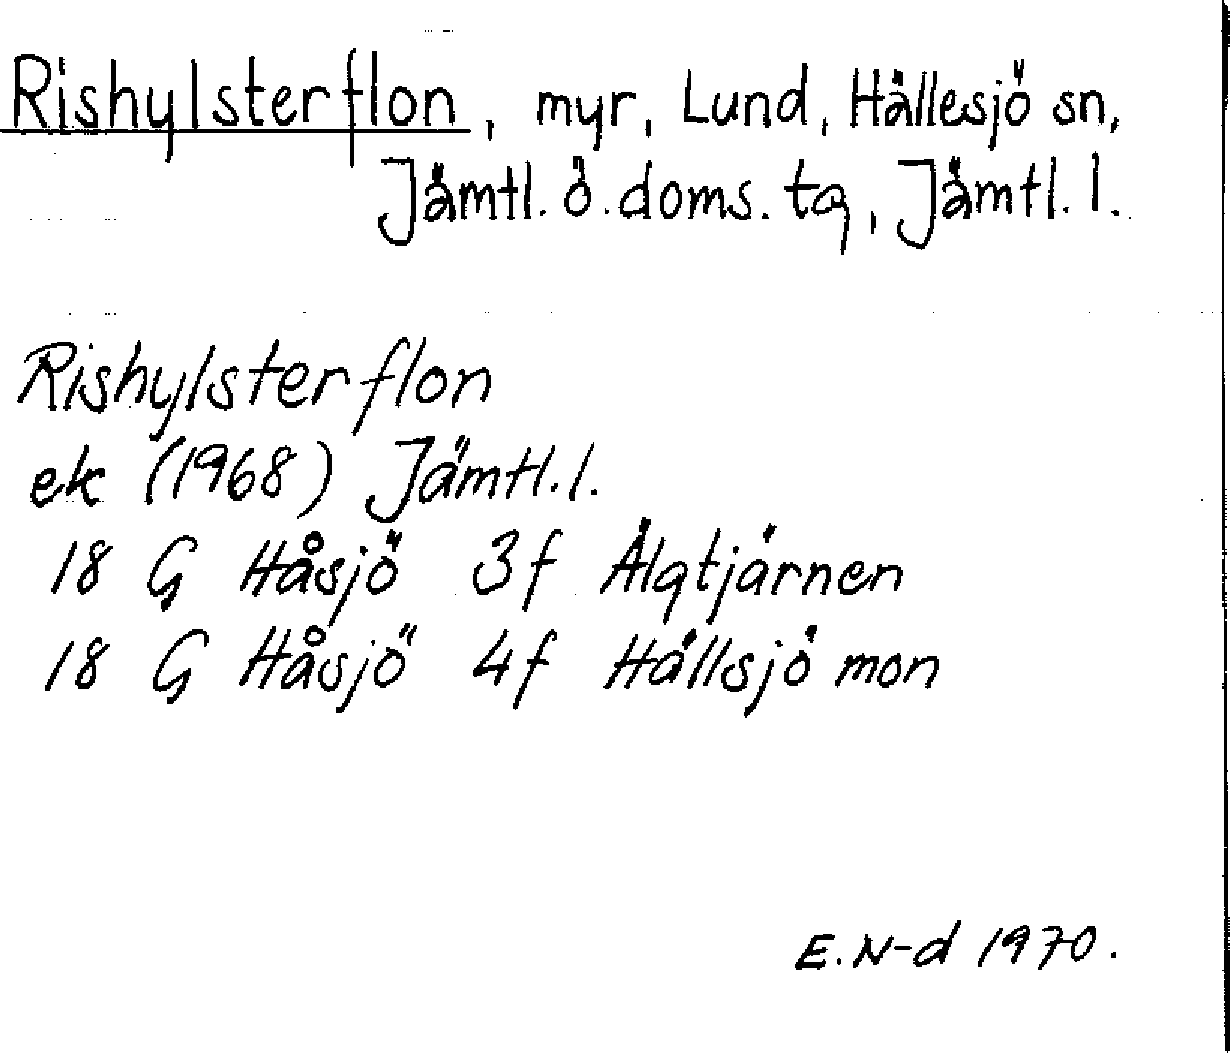 Rishylsterflon, myr, Lund, Hällesjö sn,
Jämtl. ö. doms. tg, Jämtl. l.
Rishylsterflon
ek (1968) Jämtl. l.
18 G Håsjö 3f Älgtjärnen
18 G Håsjö 4f Hällsjömon
E. N-d 1970.